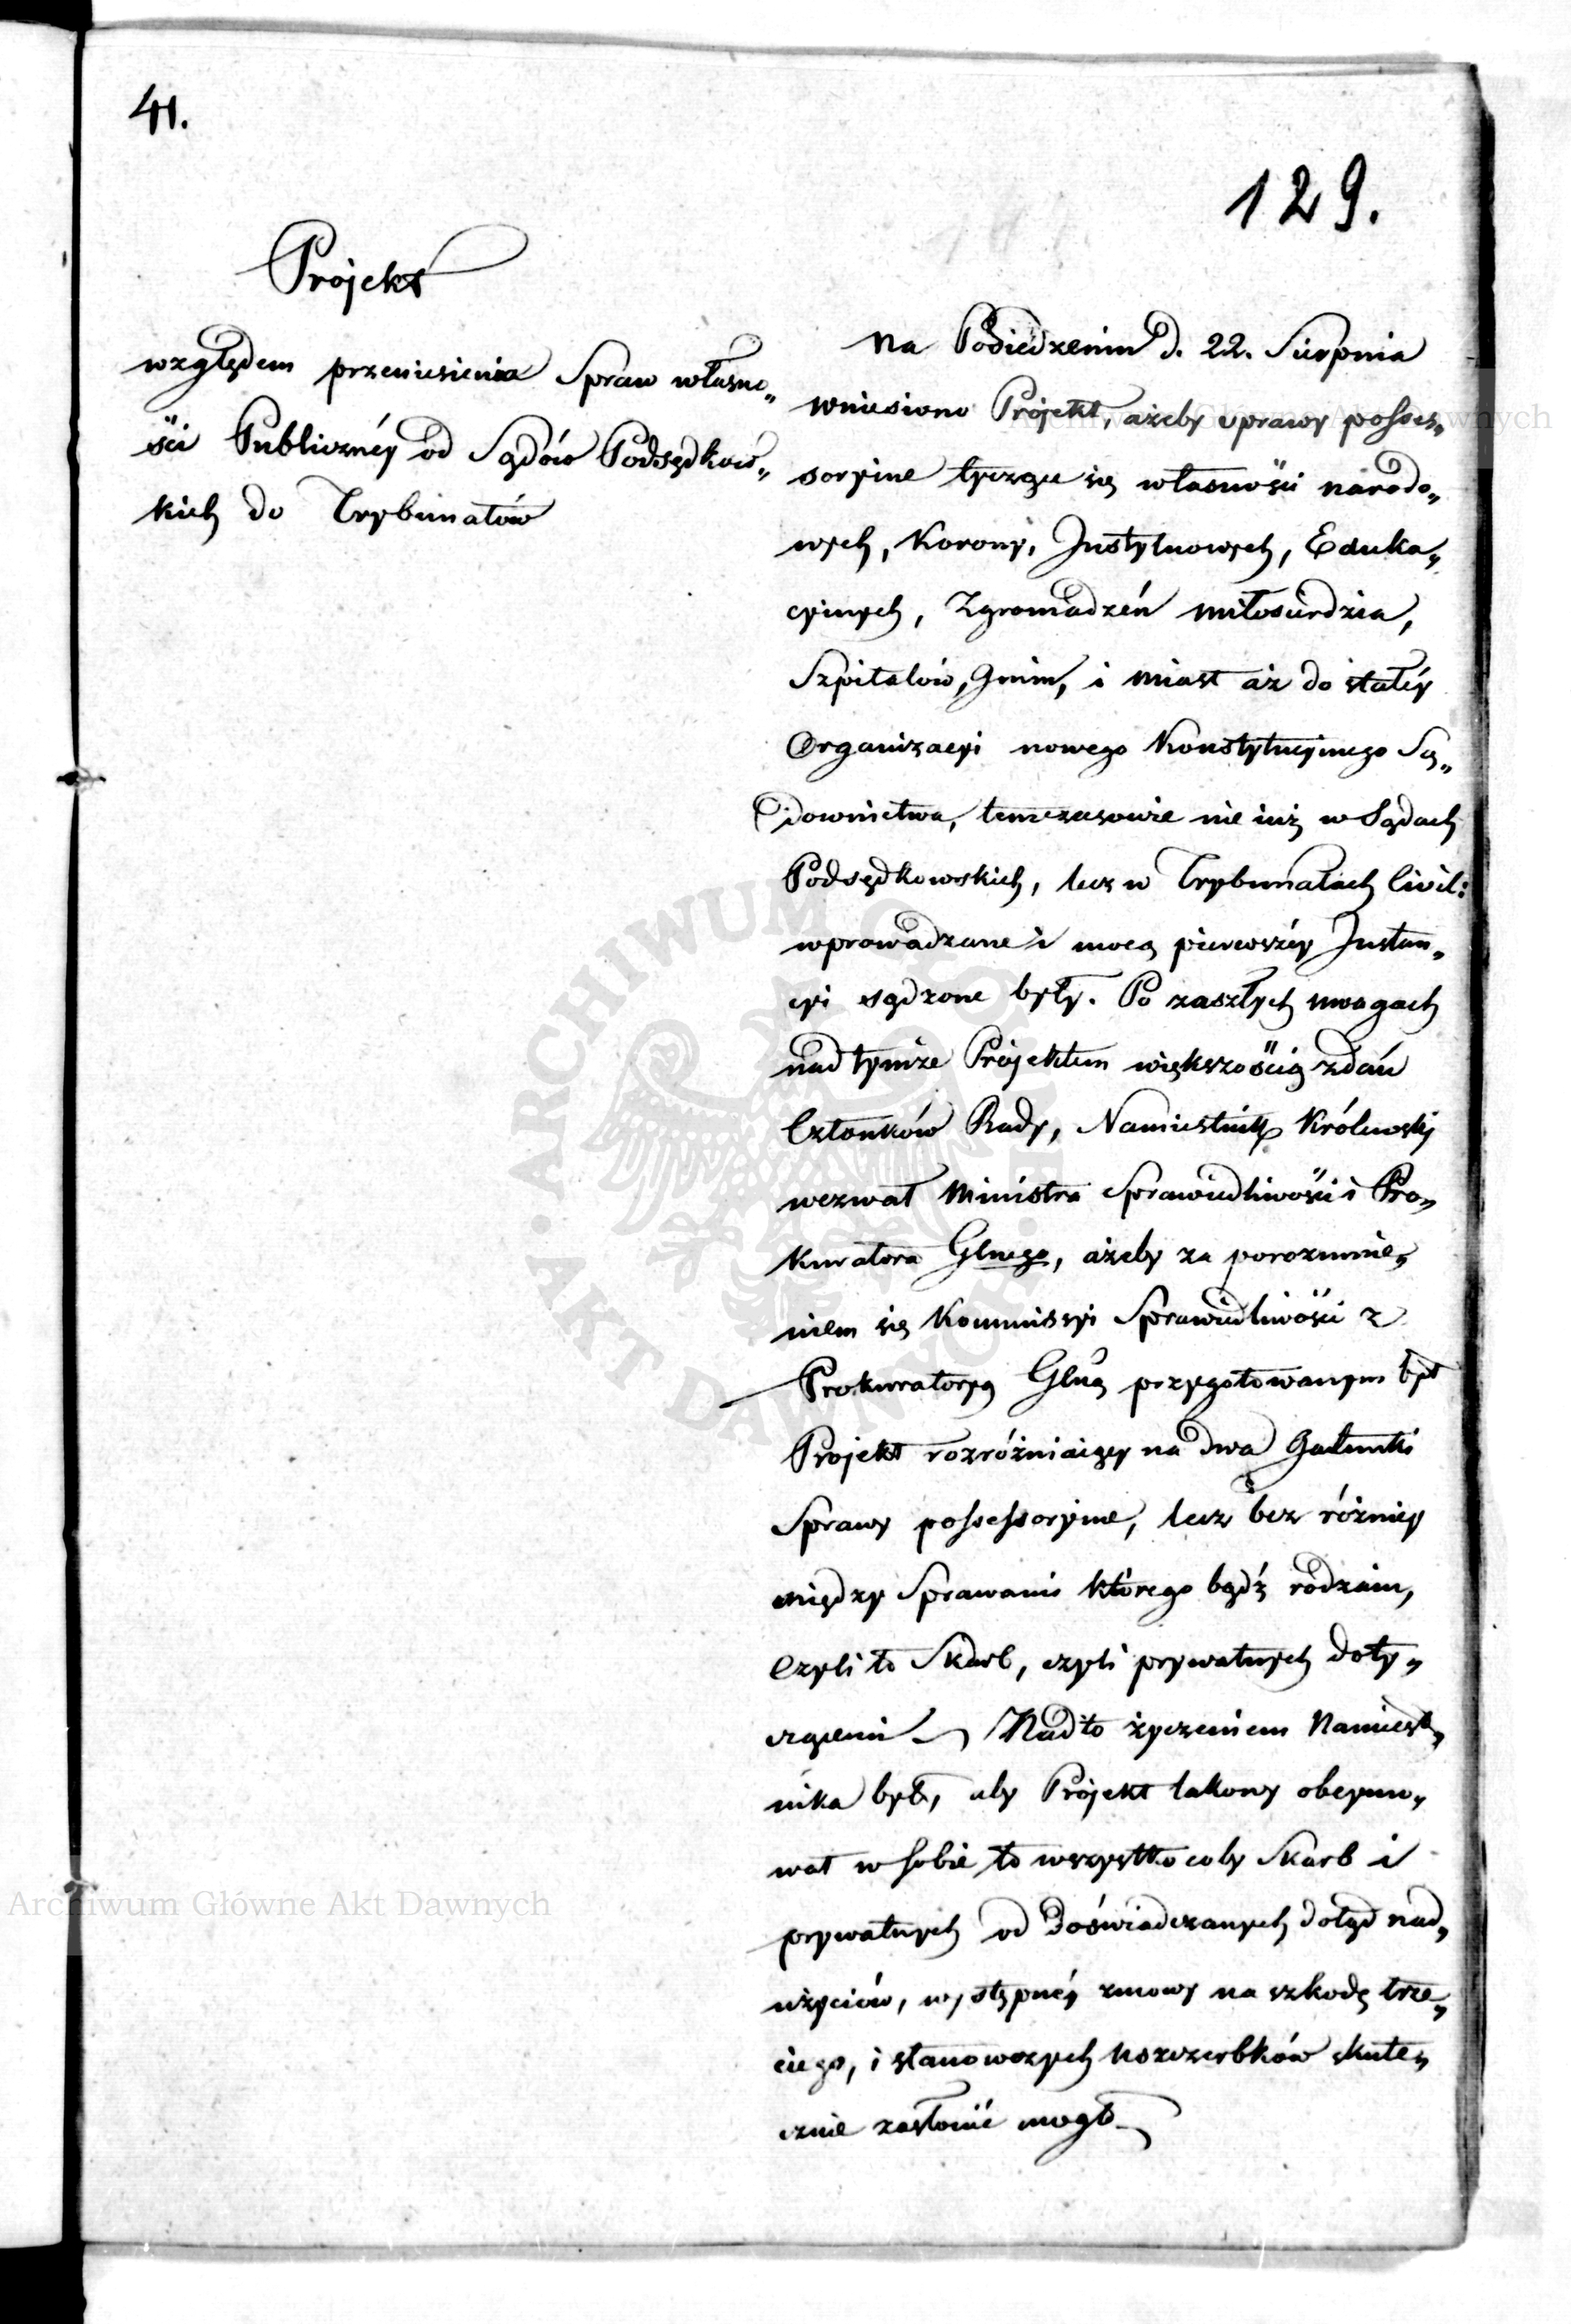 41.
129.
Projekt
względem przeniesienia Spraw własno„
ści Publicznéy od Sądów Podsędkow„
kich do Trybunałów
Na Posiedzeniu d. 22. Sierpnia
wniesiono Projekt, ażeby sprawy posses„
soryine tyczące się własności narodo„
wych, Korony, Instytuowych, Eduka„
cyinych, Zgromadzéń miłosierdzia,
Szpitalów, Gmin, i miast aż do stałéy
Organizacyi nowego Konstytucyinego Są„
downictwa, temczasowie nie iuż w Sądach
Podsędkowskich, lecz w Trybunałach Civil:
wprowadzane i mocą pierwszéy Instan„
cyi sądzone były. Po zaszłych uwagach
nad tymże Projektem większością zdań
Członków Rady, Namiestnik Królewski
wezwał Ministra Sprawiedliwości i Pro„
kuratora Glnego, ażeby za porozumie„
niem się Kommissyi Sprawiedliwości z
Prokuratoryą Glną przygotowanym był
Projekt rozróżniaiący na dwa Gatunki
Sprawy possessoryine, lecz bez różnicy
między Sprawami którego bądź rodzaiu,
Czyli to Skarb, czyli prywatnych doty„
czącemi Nadto życzeniem Namiest„
nika było, aby Projekt takowy obeymo„
wał w sobie to wszystko coby Skarb i
prywatnych od doświadczanych dotąd nad„
użyciów, występnéy zmowy na szkodę trze„
ciego, i stanowczych uszczerbków skute„
cznie zasłonić mogło
Archiwum Główne Akt Dawnych
Archiwum Główne Akt Dawnych
ARCHIWUM GŁÓWNE · AKT DAWNYCH ·